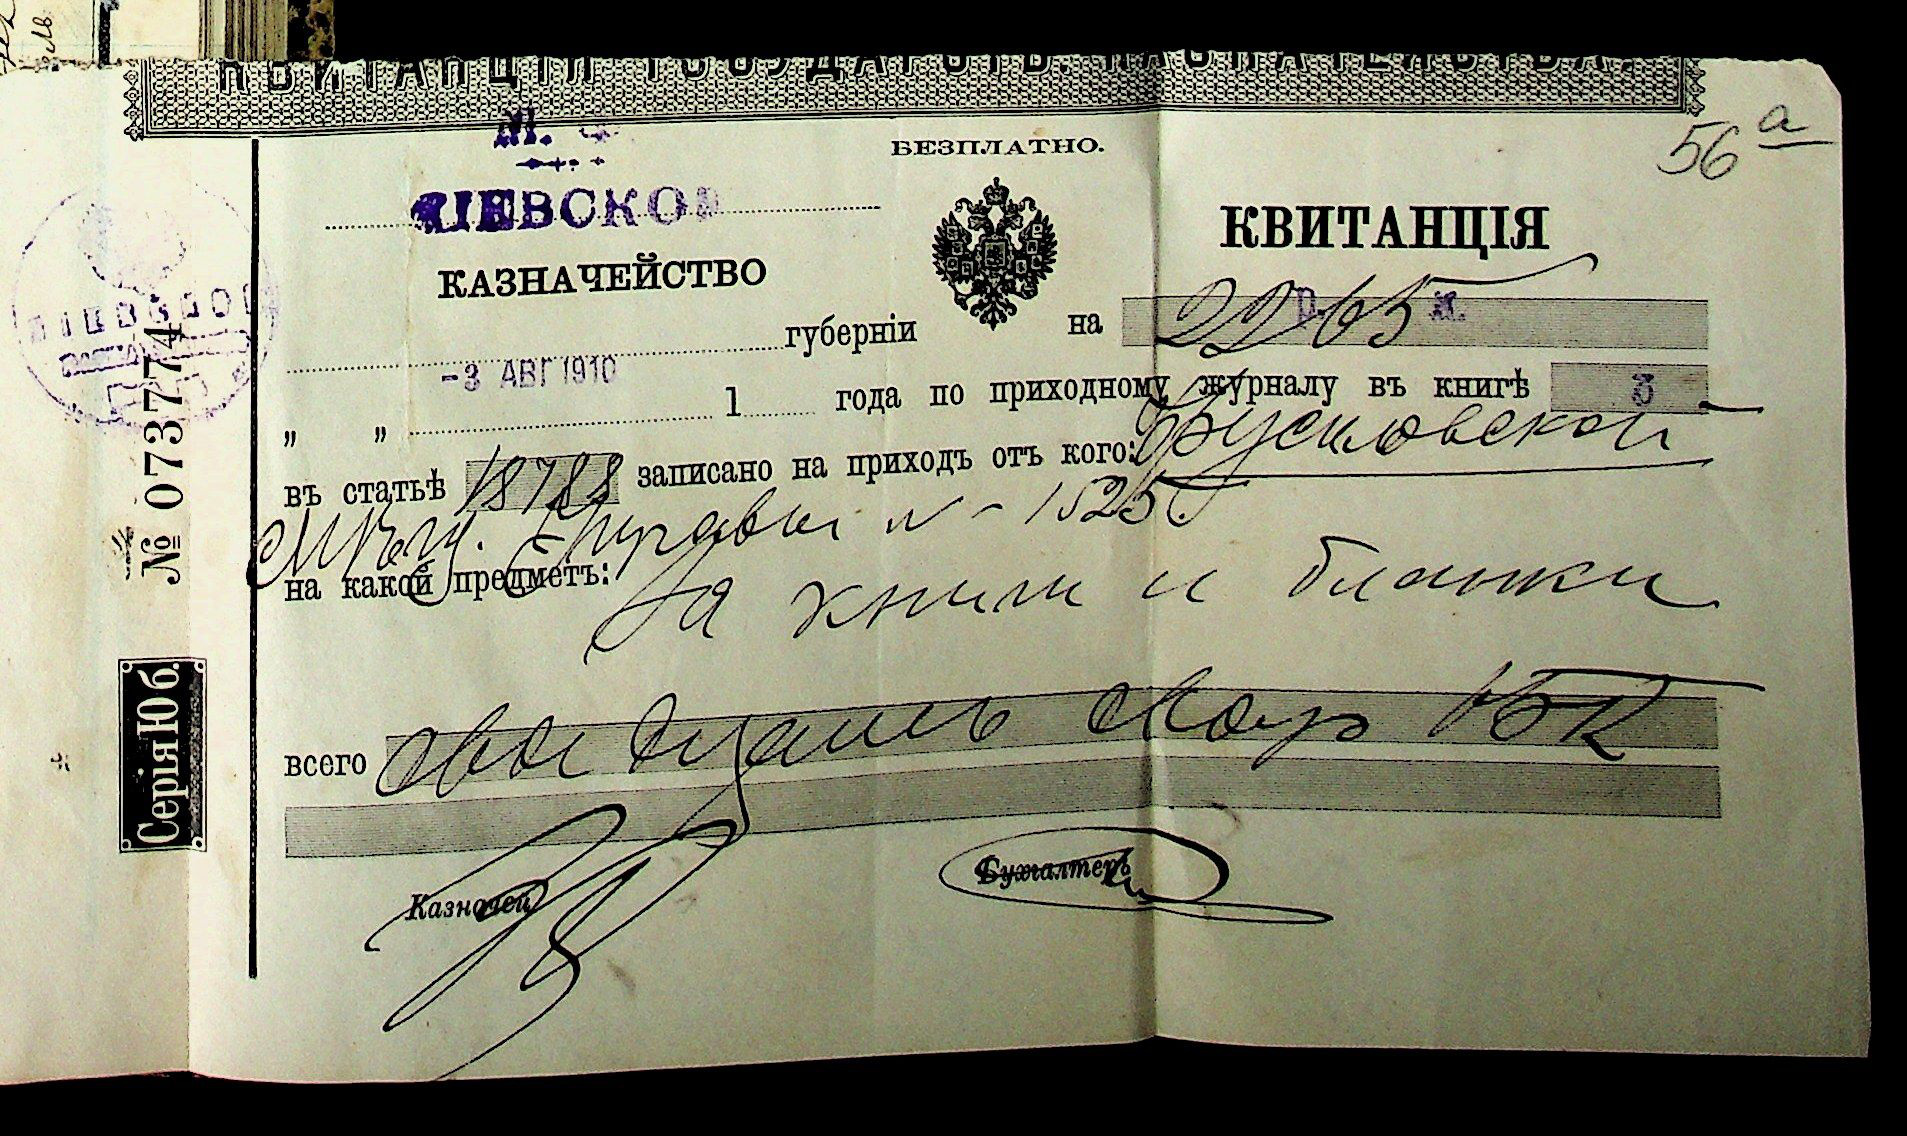 КВИТАНЦІИ ГОСУДАРСТВ. КАЗНАЧЕЙСТВА.
БЕЗПЛАТНО.
56 а
КІЕВСКОЕ
КАЗНАЧЕЙСТВО
КВИТАНЦІЯ
губерніи
на 22 р. 65 к.
-3 АВГ 1910
„ „ 1 года по приходному журналу въ книгѣ 3
въ статьѣ 18788 записано на приходъ отъ кого:
Мѣщ. Управы № - 1525.
на какой предметъ: За книги и бланки
всего два рубля 65 к
Казначей
Бухгалтеръ
КІЕВСКОЕ
№ 073774
Серія Юб.